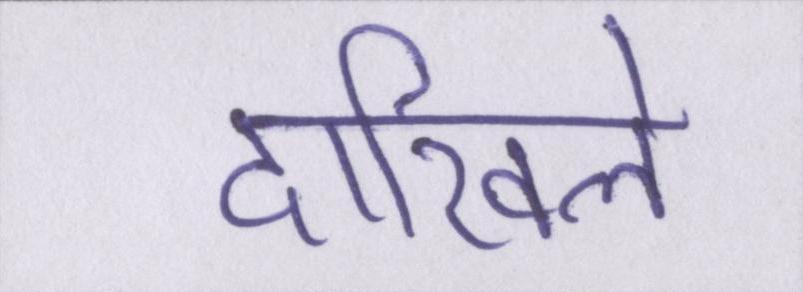 दाखिले